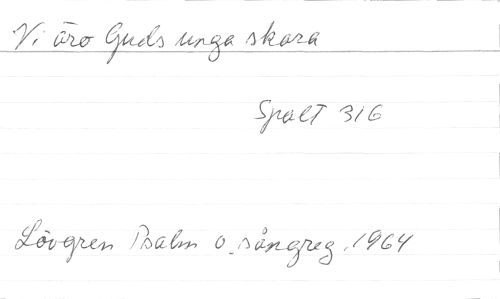 Vi äro Guds unga skara
Spalt 316
Lövgren Psalm o. sångreg. 1964